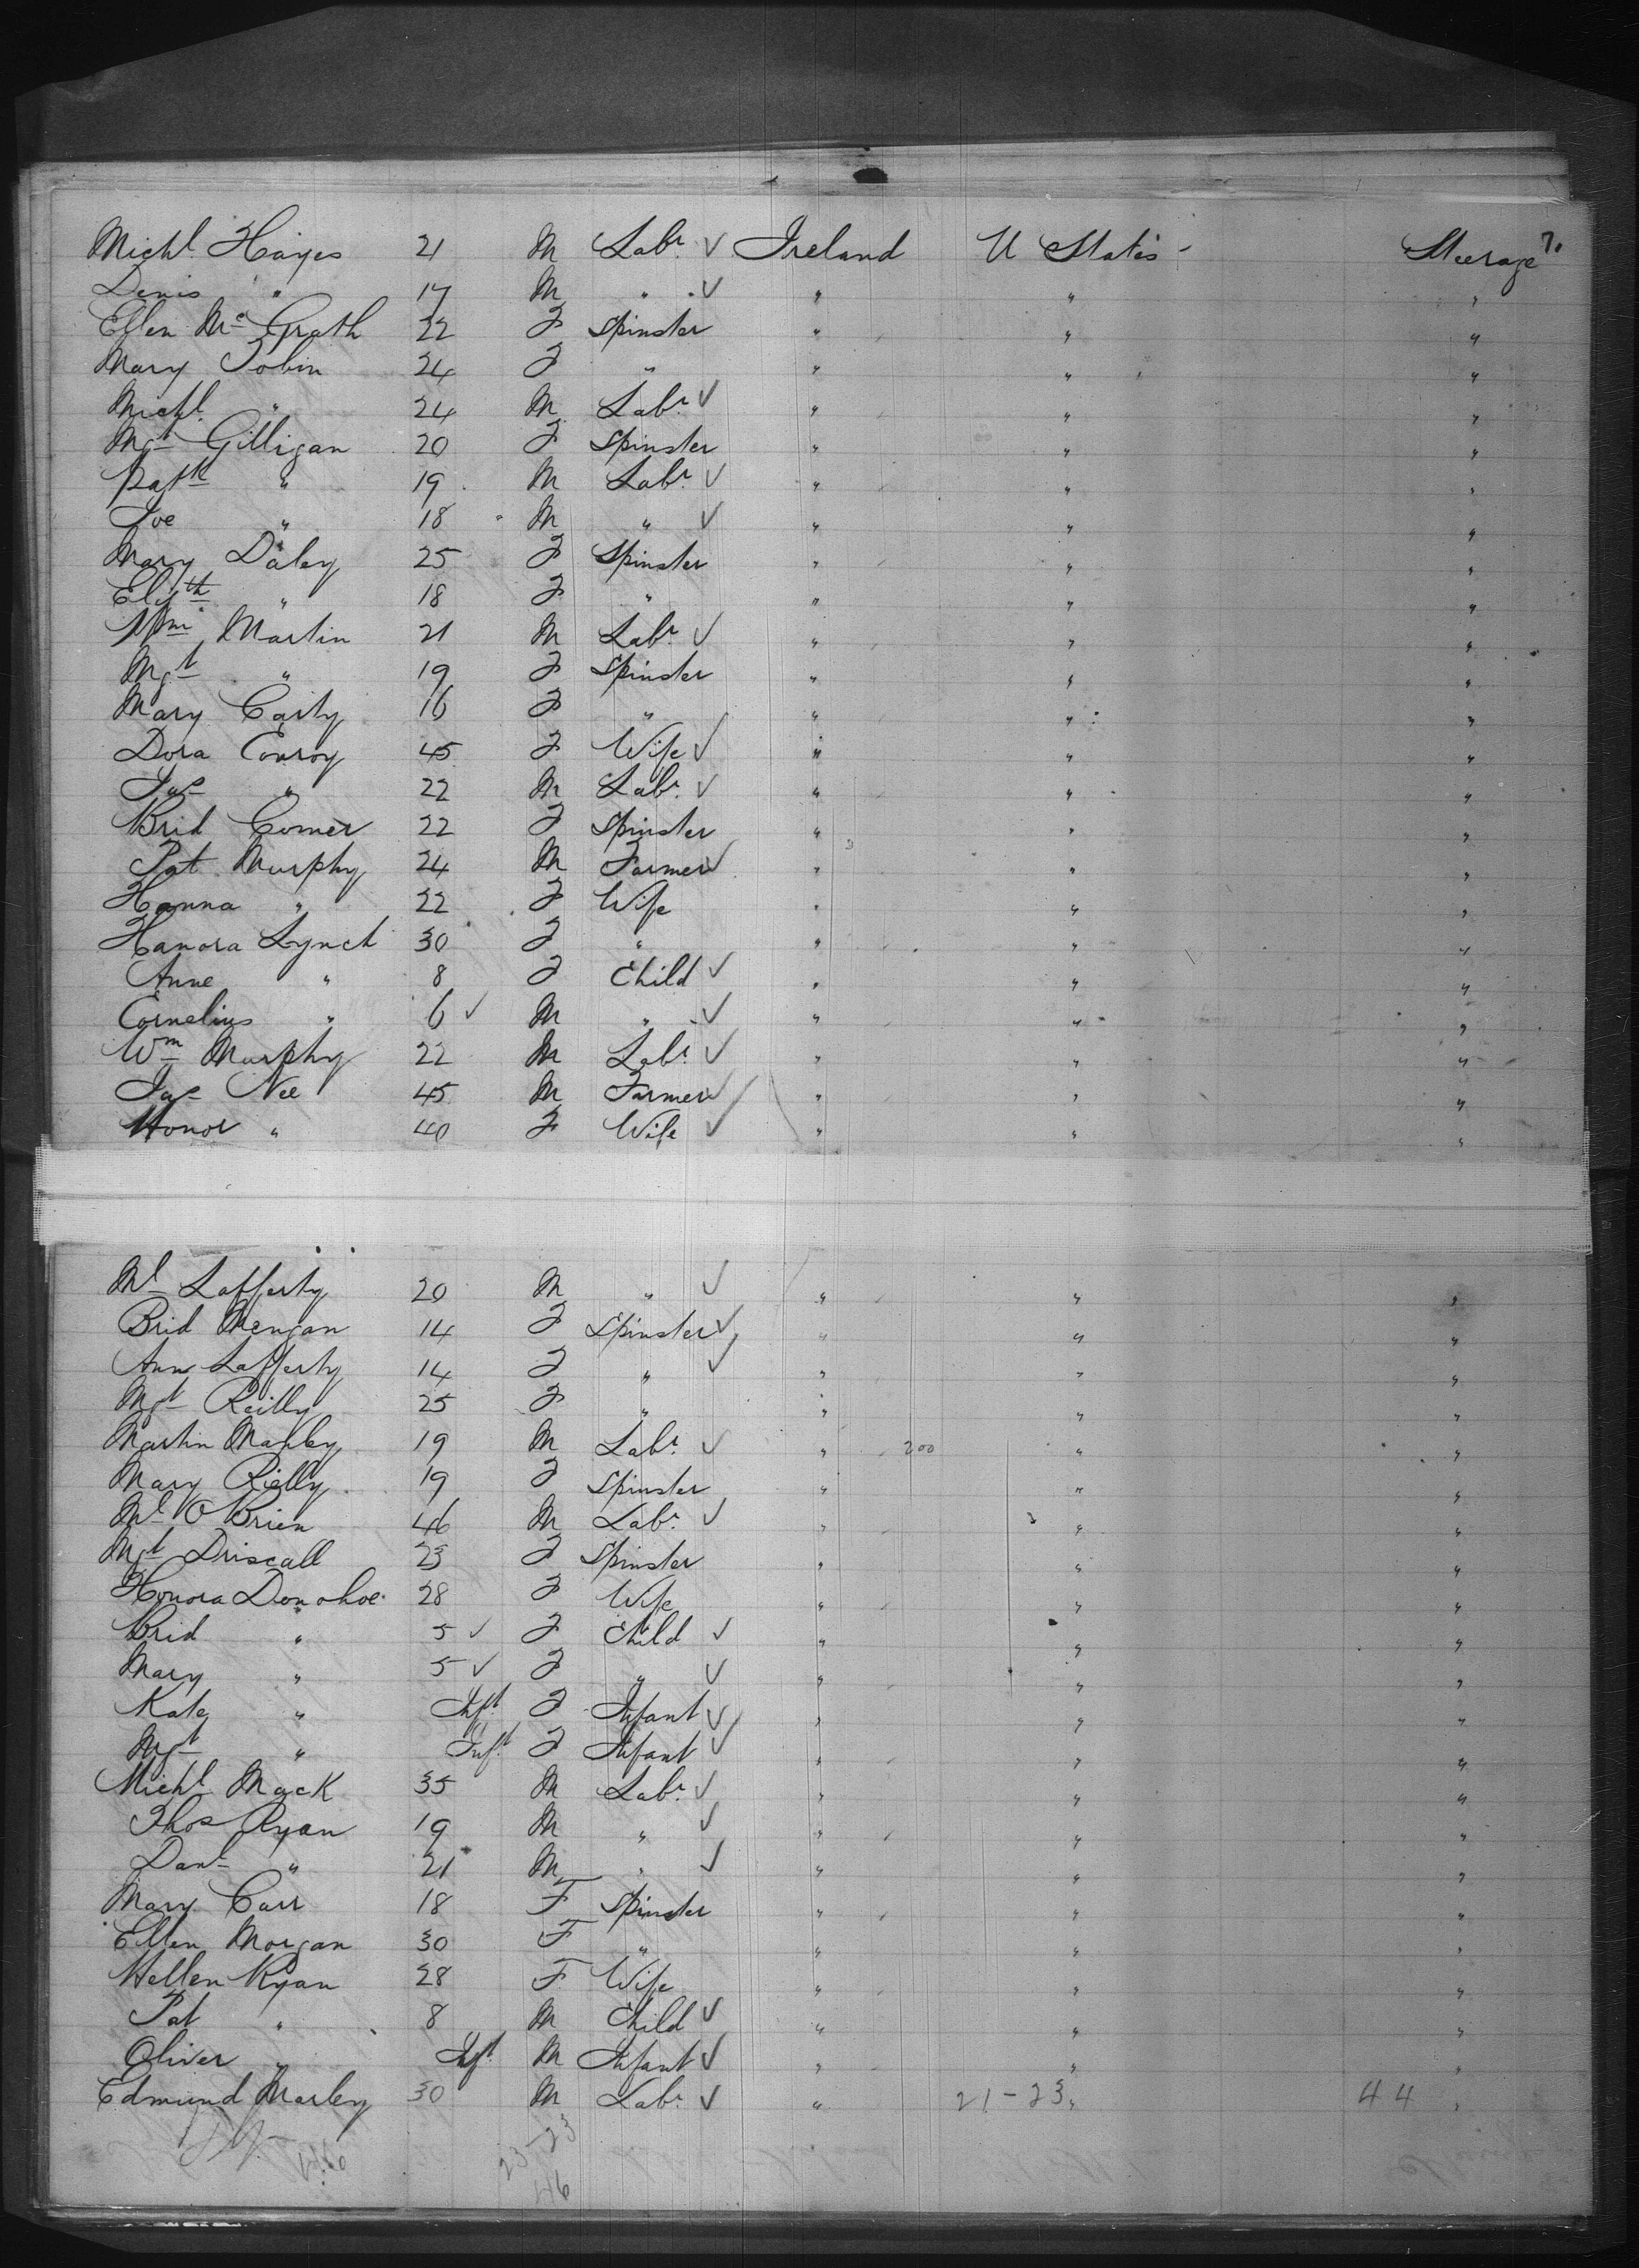 7.
Michl. Hayes 21 M Labr. ✓ Ireland U States - Steerage
Denis " 17 M " ✓ " " "
Ellen McGrath 22 F Spinster " " "
Mary Tobin 24 F " " " "
Michl. " 24 M Labr. ✓ " " "
Mgt Gilligan 20 F Spinster " " "
Patk " 19 M Labr. ✓ " " "
Joe " 18 M " ✓ " " "
Mary Daley 25 F Spinster " " "
Elizth " 18 F " " " "
Wm Martin 21 M Labr. ✓ " " "
Mgt " 19 F Spinster " " "
Mary Carty 16 F " " " "
Dora Conroy 45 F Wife ✓ " " "
Jas " 22 M Labr. ✓ " " "
Brid Comer 22 F Spinster " " "
Pat Murphy 24 M Farmer ✓ " " "
Hanna " 22 F Wife " " "
Hanora Lynch 30 F " " " "
Anne " 8 F Child ✓ " " "
Cornelius " 6 ✓ M " ✓ " " "
Wm Murphy 22 M Labr. ✓ " " "
Jas Nee 45 M Farmer ✓ " " "
Honor " 40 F Wife ✓ " " "
Ml Lafferty 20 M " ✓ " " "
Brid Mengan 14 F Spinster ✓ " " "
Ann Lafferty 14 F " ✓ " " "
Mgt Reilly 25 F " " " "
Martin Manley 19 M Labr. ✓ " 200 " "
Mary Rielly 19 F Spinster " " "
Ml O Brien 46 M Labr. ✓ " " "
Mgt Driscall 23 F Spinster " " "
Honora Donohoe 28 F Wife " " "
Brid " 5 ✓ F Child ✓ " " "
Mary " 5 ✓ F " ✓ " " "
Kate " Inft F Infant ✓ " " "
Mgt " Inft F Infant ✓ " " "
Michl Mack 35 M Labr. ✓ " " "
Thos Ryan 19 M " ✓ " " "
Danl " 21 M " ✓ " " "
Mary Carr 18 F Spinster " " "
Ellen Morgan 30 F " " " "
Hellen Ryan 28 F Wife " " "
Pat " 8 M Child ✓ " " "
Oliver " Inft M Infant ✓ " " "
Edmund Marley 30 M Labr. ✓ " 21-23 " 44 "
23-23
46